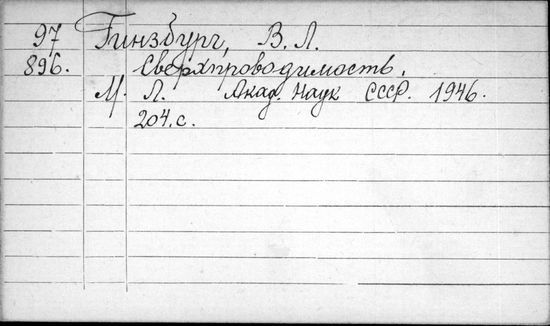 97 Гинзбург, В. Л.
896. Сверхпроводимость.
М. Л. Акад. Наук СССР. 1946.
204.с.